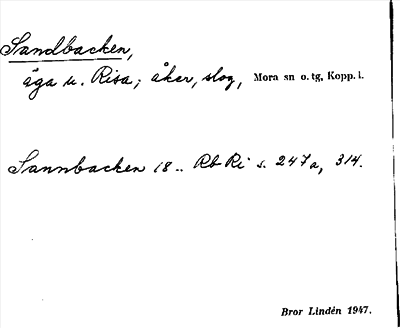 Sandbacken,
äga u. Risa; åker, slog, Mora sn o. tg, Kopp. l.
Sannbacken 18.. Rb Ri s. 247a, 314.
Bror Lindén 1947.